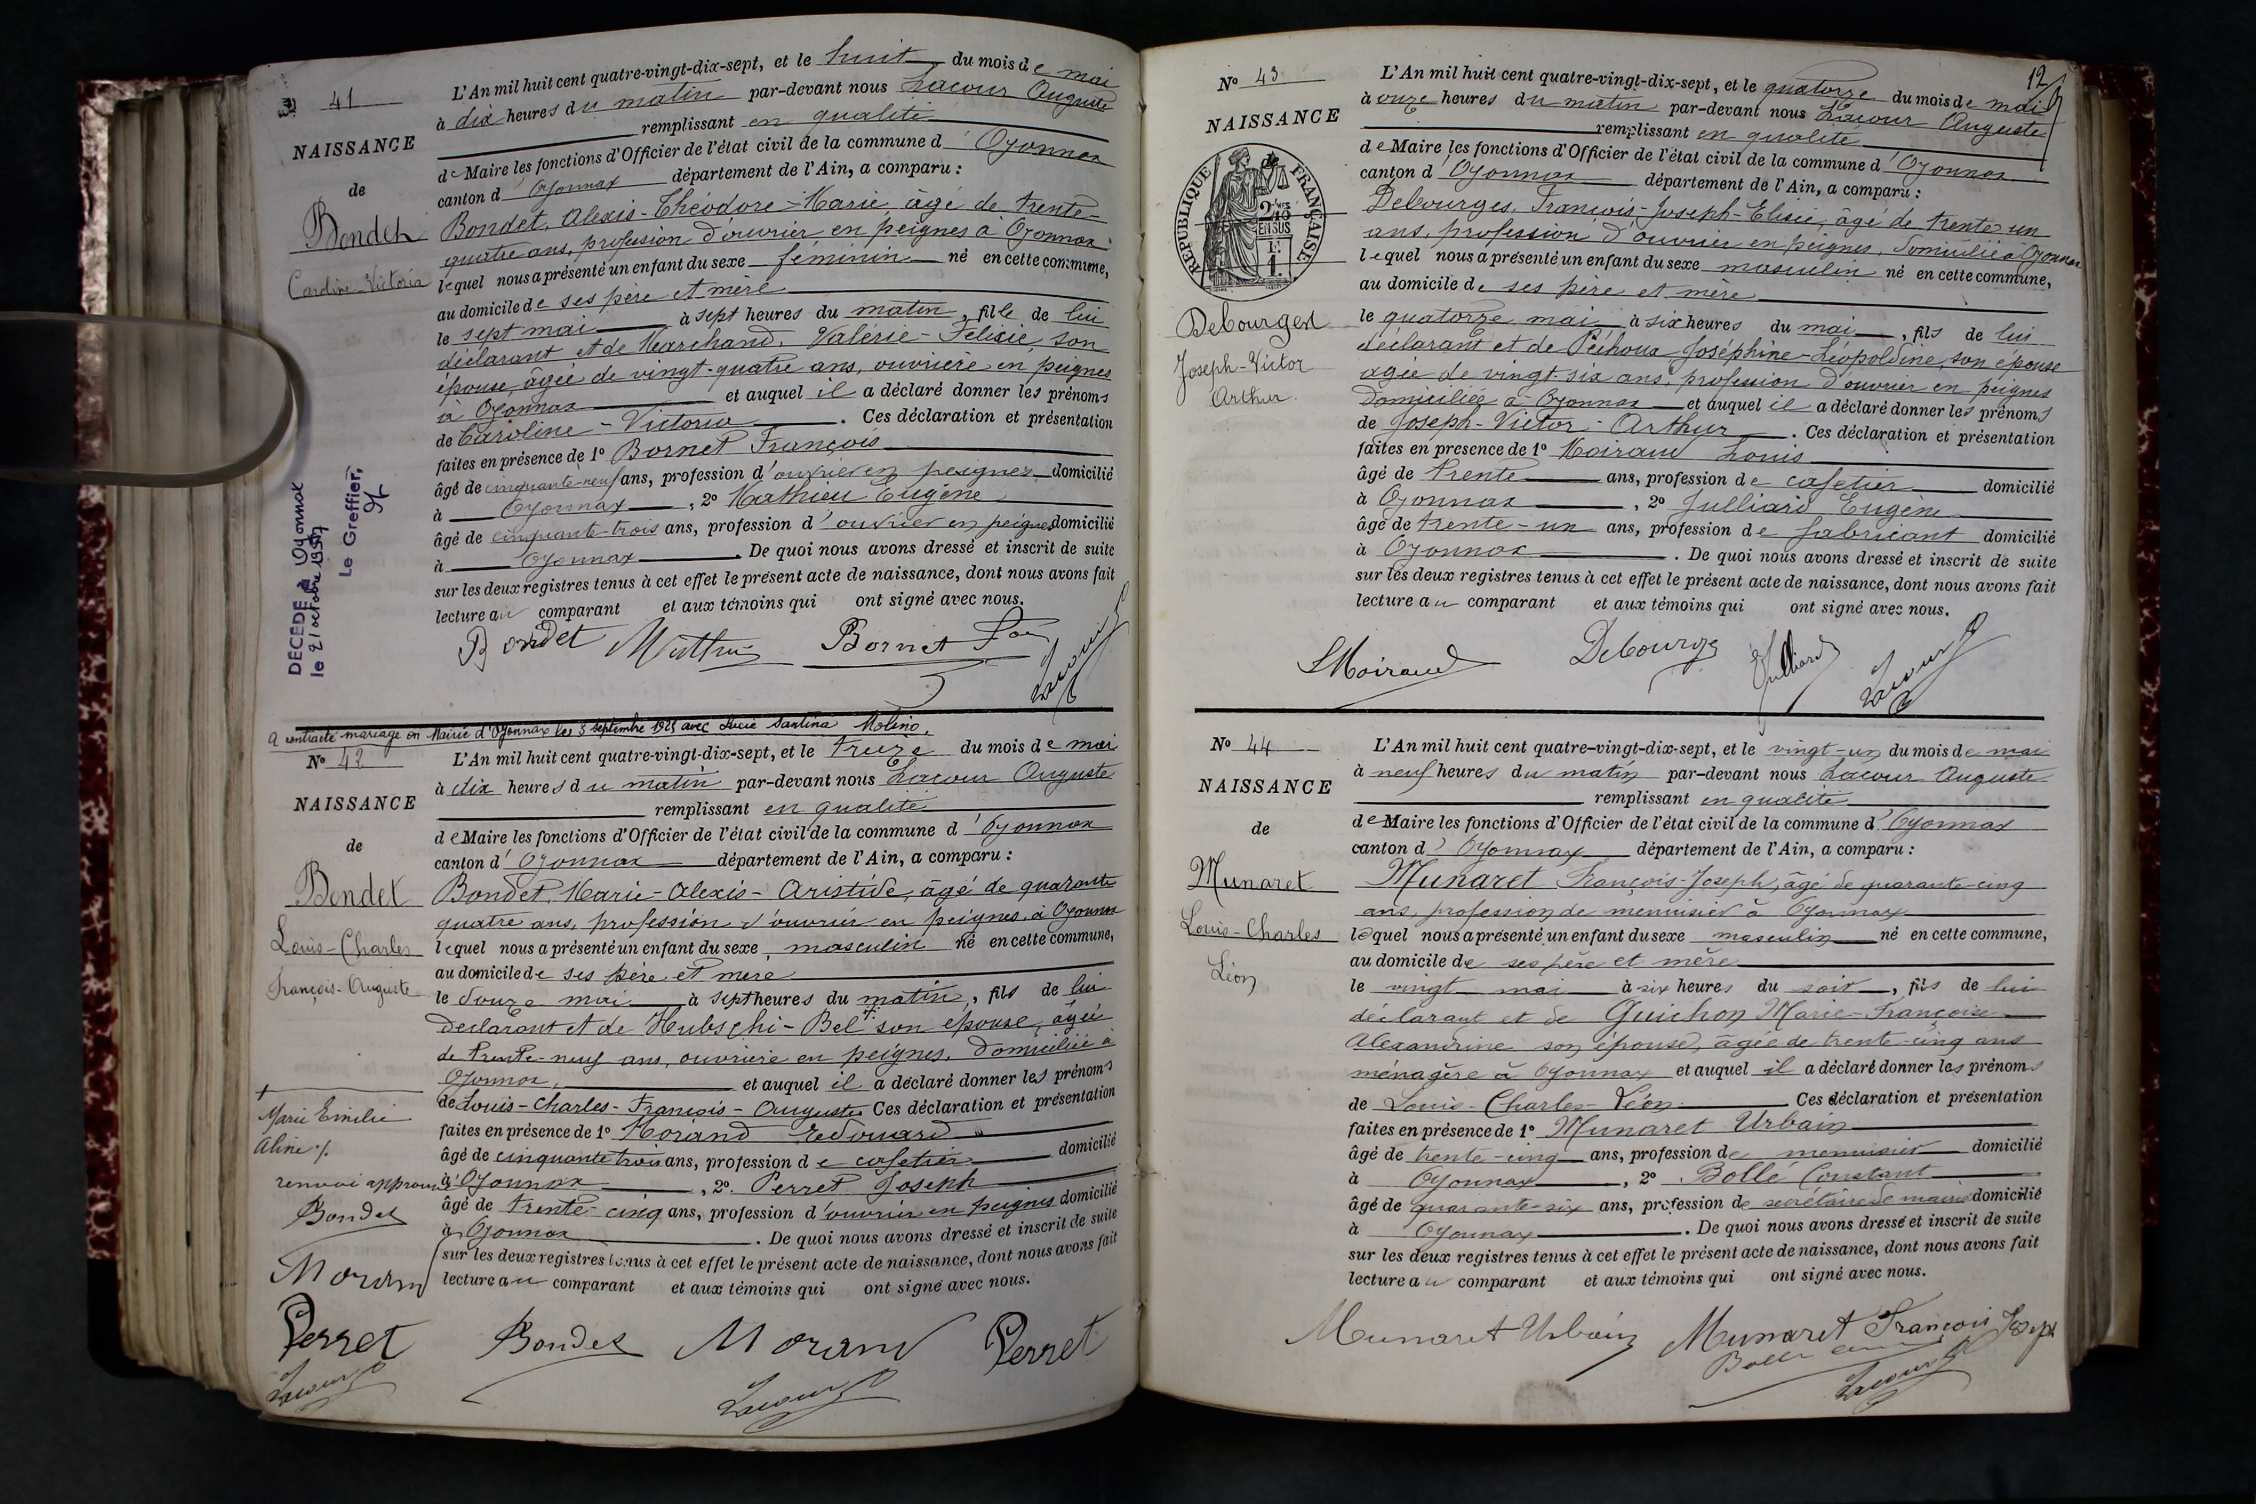 41
NAISSANCE
de
Bondet
Caroline-Victoria
DÉCÉDÉ à Oyonnax
le 21 octobre 1957
Le Greffier,
L'An mil huit cent quatre-vingt-dix-sept, et le huit du mois de mai
à dix heures du matin par-devant nous Lacour Auguste
remplissant en qualité
de Maire les fonctions d'Officier de l'état civil de la commune d'Oyonnax
canton d'Oyonnax département de l'Ain, a comparu :
Bondet, Alexis-Théodore-Marie, âgé de trente-
quatre ans, profession d'ouvrier en peignes à Oyonnax
lequel nous a présenté un enfant du sexe féminin né en cette commune,
au domicile de ses père et mère
le sept mai à sept heures du matin, fille de lui
déclarant et de Marchand, Valérie-Félisie, son
épouse, âgée de vingt-quatre ans, ouvrière en peignes
à Oyonnax et auquel il a déclaré donner les prénoms
de Caroline-Victoria. Ces déclaration et présentation
faites en présence de 1° Bornet François
âgé de cinquante-neuf ans, profession d'ouvrier en peignes domicilié
à Oyonnax, 2° Mathieu Eugène
âgé de cinquante-trois ans, profession d'ouvrier en peignes domicilié
à Oyonnax. De quoi nous avons dressé et inscrit de suite
sur les deux registres tenus à cet effet le présent acte de naissance, dont nous avons fait
lecture au comparant et aux témoins qui ont signé avec nous.
Bondet Mathieu Bornet Lacour
A contracté mariage en Mairie d'Oyonnax les 3 septembre 1925 avec Lucie Santina Molino.
N° 42
NAISSANCE
de
Bondet
Louis-Charles
François-Auguste
L'An mil huit cent quatre-vingt-dix-sept, et le treize du mois de mai
à dix heures du matin par-devant nous Lacour Auguste
remplissant en qualité
de Maire les fonctions d'Officier de l'état civil de la commune d'Oyonnax
canton d'Oyonnax département de l'Ain, a comparu :
Bondet, Marie-Alexis-Aristide, âgé de quarante
quatre ans, profession d'ouvrier en peignes, à Oyonnax
lequel nous a présenté un enfant du sexe masculin né en cette commune,
au domicile de ses père et mère
le douze mai à sept heures du matin, fils de lui
déclarant et de Hubschi-Bel son épouse, âgée
de trente-neuf ans, ouvrière en peignes, domiciliée à
Oyonnax, et auquel il a déclaré donner les prénoms
de Louis-Charles-François-Auguste Ces déclaration et présentation
faites en présence de 1° Morand Edouard
âgé de cinquante trois ans, profession de cafetier domicilié
à Oyonnax, 2° Perret Joseph
âgé de trente-cinq ans, profession d'ouvrier en peignes domicilié
à Oyonnax. De quoi nous avons dressé et inscrit de suite
sur les deux registres tenus à cet effet le présent acte de naissance, dont nous avons fait
lecture au comparant et aux témoins qui ont signé avec nous.
Marie Emilie
Aline
renvoi approuvé
Bondet
Morand
Perret
Lacour
Bondet Morand Perret
Lacour
12
N° 43
NAISSANCE
RÉPUBLIQUE FRANÇAISE
2/10 EN SUS
Debourges
Joseph-Victor
Arthur.
L'An mil huit cent quatre-vingt-dix-sept, et le quatorze du mois de mai
à onze heures du matin par-devant nous Lacour Auguste
remplissant en qualité
de Maire les fonctions d'Officier de l'état civil de la commune d'Oyonnax
canton d'Oyonnax département de l'Ain, a comparu :
Debourges, François-Joseph-Elisée, âgé de trente un
ans, profession d'ouvrier en peignes, domicilié à Oyonnax
lequel nous a présenté un enfant du sexe masculin né en cette commune,
au domicile de ses père et mère
le quatorze mai à six heures du mai, fils de lui
déclarant et de Péchoux Joséphine-Léopoldine, son épouse
âgée de vingt-six ans, profession d'ouvrier en peignes
domiciliée à Oyonnax et auquel il a déclaré donner les prénoms
de Joseph-Victor-Arthur. Ces déclaration et présentation
faites en présence de 1° Moiraud Louis
âgé de trente ans, profession de cafetier domicilié
à Oyonnax, 2° Julliard Eugène
âgé de trente-un ans, profession de fabricant domicilié
à Oyonnax. De quoi nous avons dressé et inscrit de suite
sur les deux registres tenus à cet effet le présent acte de naissance, dont nous avons fait
lecture au comparant et aux témoins qui ont signé avec nous.
LMoiraud Debourge Julliard Lacour
N° 44
NAISSANCE
de
Munaret
Louis-Charles
Léon
L'An mil huit cent quatre-vingt-dix-sept, et le vingt-un du mois de mai
à neuf heures du matin par-devant nous Lacour Auguste
remplissant en qualité
de Maire les fonctions d'Officier de l'état civil de la commune d'Oyonnax
canton d'Oyonnax département de l'Ain, a comparu :
Munaret François-Joseph, âgé de quarante-cinq
ans, profession de menuisier à Oyonnax
lequel nous a présenté un enfant du sexe masculin né en cette commune,
au domicile de ses père et mère
le vingt mai à six heures du soir, fils de lui
déclarant et de Guichon Marie-Françoise
Alexandrine son épouse, âgée de trente-cinq ans
ménagère à Oyonnax et auquel il a déclaré donner les prénoms
de Louis-Charles-Léon Ces déclaration et présentation
faites en présence de 1° Munaret Urbain
âgé de trente-cinq ans, profession de menuisier domicilié
à Oyonnax, 2° Bollé Constant
âgé de quarante-six ans, profession de secrétaire de mairie domicilié
à Oyonnax. De quoi nous avons dressé et inscrit de suite
sur les deux registres tenus à cet effet le présent acte de naissance, dont nous avons fait
lecture au comparant et aux témoins qui ont signé avec nous.
Munaret Urbain Munaret François Joseph
Bollé Lacour